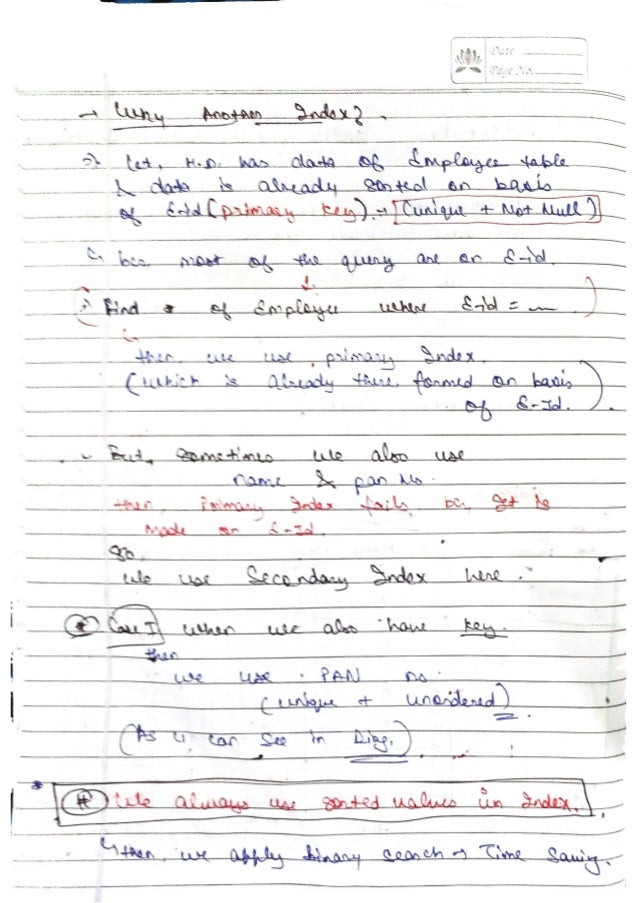 Date
Page No.
→ Why Another Index?.
⇒ Let, H.D. has data of Employee table
& data is already sorted on basis
of E-id (primary key). → [(unique + Not Null)]
↳ bcz most of the query are on E-id.
↓
(∴ Find * of Employee where E-id = ~)
↳
then, we use primary Index.
(which is already there, formed on basis
of E-Id.).
But, sometimes we also use
name & pan No.
then, Primary Index fails, bcz Iet is
made on E-Id.
So,
we use Secondary Index here.
* Case I when we also have key.
then
we use PAN no.
(unique + unordered)
(As u can see in Diag.)
* (#) We always use sorted values in Index.
↳ then, we apply binary search → Time Saving.